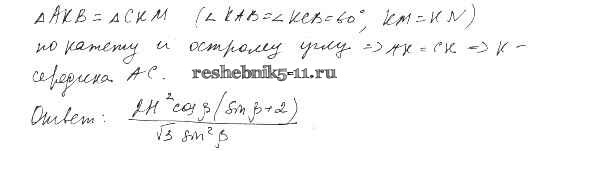 △AKB = △CKM (∠KAB = ∠KCB = 60°, KM = KN)
по катету и острому углу ⇒ AK = CK ⇒ K –
середина AC.
reshebnik5-11.ru
Ответ: 2H² cos β (sin β + 2) / √3 sin² β